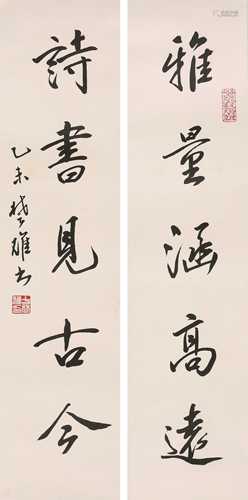 雅量涵高遠
詩書見古今
乙未楚雄書